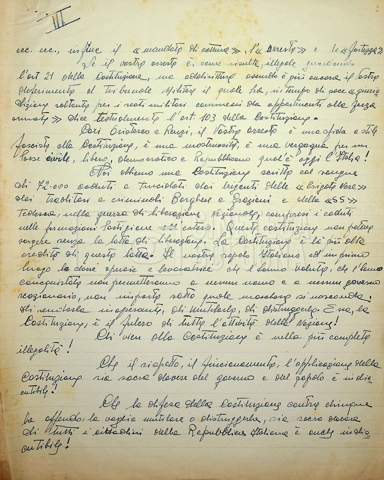 III
ecc. ecc., infine il "mandato di cattura", l'"arresto" e la "fortezza"
Se il vostro arresto è, come risulta, illegale guardando
l'art 21 della Costituzione, ma addirittura assurdo è più ancora il vostro
deferimento al Tribunale Militare il quale ha, in tempo di pace "giuris-
dizione soltanto per i reati militari commessi da appartenenti alle forze
armate" dice testualmente l'art 103 della Costituzione.
Cari Aristarco e Renzi, il Vostro arresto è una sfida e stile
fascista alla Costituzione, è una mostruosità, è una vergogna per un
Paese civile, libero, democratico e Repubblicano qual'è oggi l'Italia!
Noi abbiamo una Costituzione scritta col sangue
di 72.000 caduti e trucidati dai briganti delle "brigate nere"
dei traditori e criminali Borghese e Graziani e delle "SS"
Tedesca, nella guerra di liberazione Nazionale, compresi i caduti
nelle formazioni Partigiane all'estero. Questa costituzione non poteva
sorgere senza la lotta di liberazione. La Costituzione è la più alta
eredità di questa lotta. Il nostro popolo Italiano ed in primo
luogo la classe operaia e lavoratrice che l'hanno voluta, che l'hanno
conquistata non permetteranno a nessun uomo e a nessun governo
reazionario, non importa sotto quale maschera si nasconda,
di renderla inoperante, di mutilarla, di distruggerla. Essa, la
Costituzione, è il fulcro di tutta l'attività della Nazione!
Chi viola la Costituzione è nella più completa
illegalità!
Che il rispetto, il funzionamento, l'applicazione della
Costituzione sia sacro dovere del governo e del popolo è indis-
cutibile!
Che la difesa della Costituzione contro chiunque
la offenda, la voglia mutilare o distruggerla, sia sacro dovere
di tutti i cittadini della Repubblica Italiana è anche indis-
cutibile!